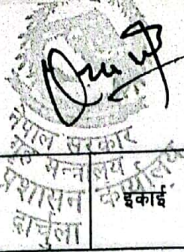 नेपाल सरकार
गृह मन्त्रालय
प्रशासन कार्यालय
दार्चुला
इकाई